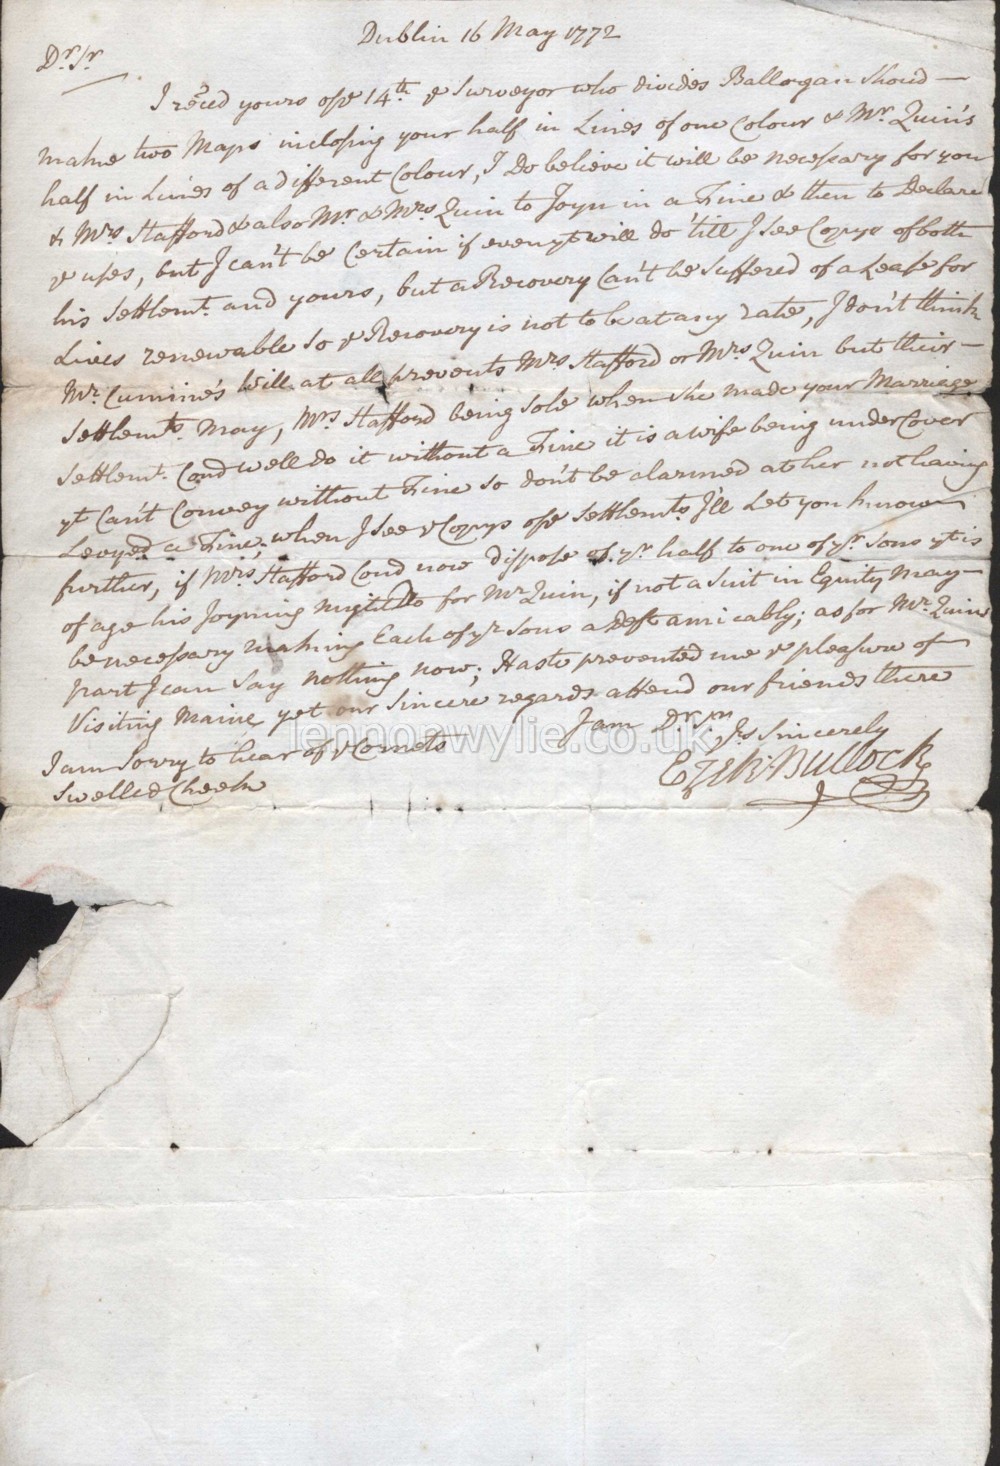 Dublin 16 May 1772
Dr. Sr
I reced yours of ye 14th ye Surveyor who divides Ballorgan Shoud
make two Maps inclosing your half in Lines of one Colour & Mr. Quin's
half in Lines of a different Colour, I Do believe it will be necessary for you
& Mrs Stafford & also Mr & Mrs Quin to Joyn in a Fine & then to Declare
ye uses, but I can't be Certain if even yt will do 'till I see Copys of both
his Settlemt. and yours, but a Recovery Can't be Suffered of a Lease for
Lives renewable so ye Recovery is not to be at any rate, I don't think
Mr. Cumine's Will at all prevents Mrs. Stafford or Mrs Quin but their
Settlemts. may, Mrs Stafford being Sole when she made your Marriage
Settlemt. Coud well do it without a Fine it is a wife being under Cover
yt Can't Convey without Fine so don't be alarmed at her not having
Levyed a Fine, when I see ye Copys of ye Settlemts. I'll Let you know
further, if Mrs. Stafford Coud now dispose of yr. half to one of yr. Sons yt is
of age his Joyning might Do for Mr Quin, if not a Suit in Equity May
be necessary making Each of yr Sons a Deft amicably; as for Mr. Quins
part I can Say nothing now; Haste prevented me ye pleasure of
Visiting Maine yet our Sincere regards attend our friends there
I am Dr. Sr, Yrs Sincerely
I am Sorry to hear of ye Cornets
Swelled Cheek
Ezek: Bullock
lennonwylie.co.uk